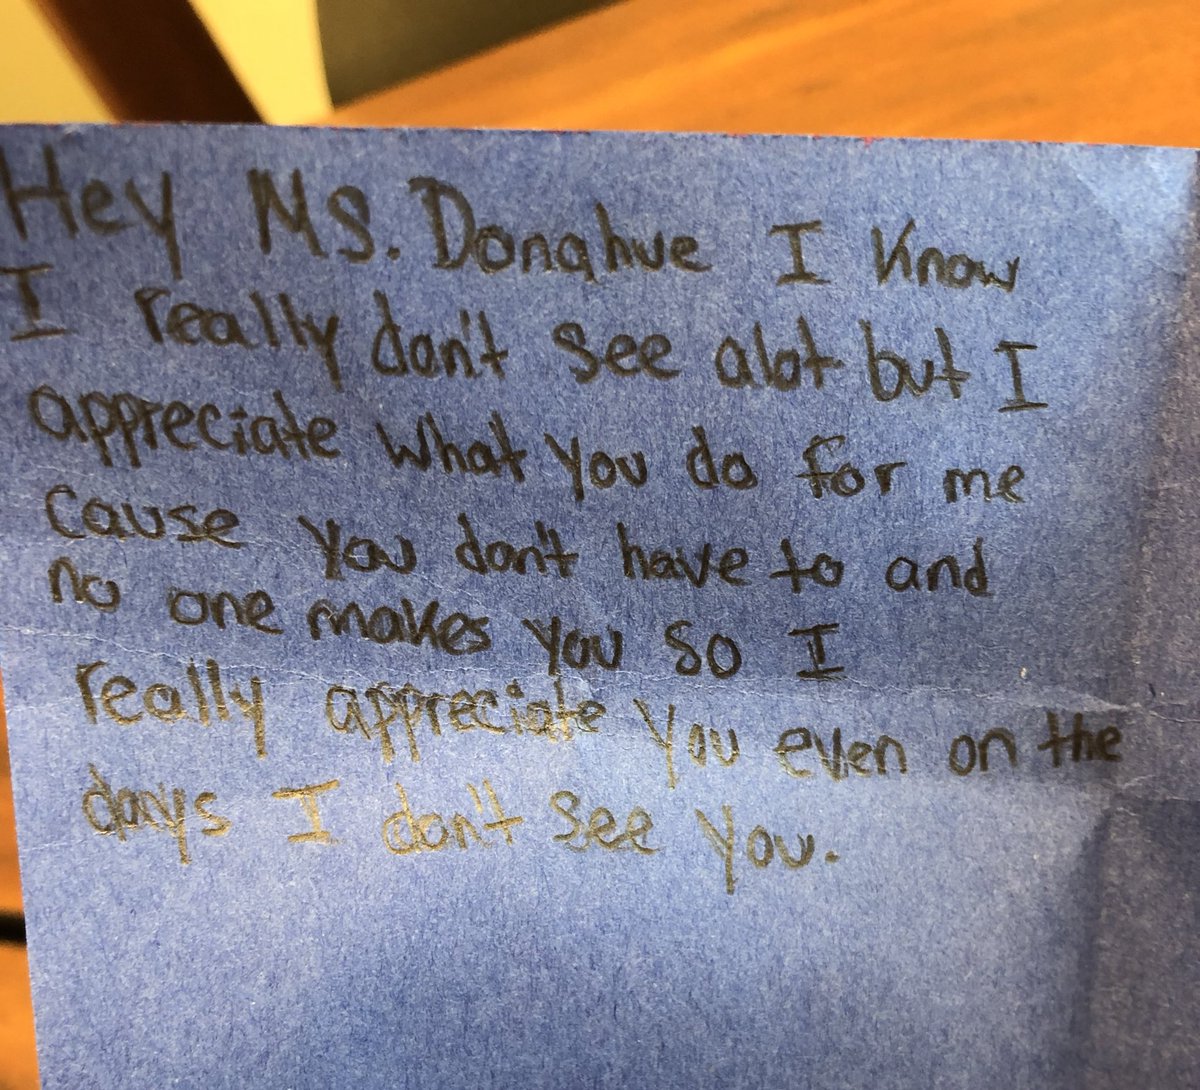 Hey MS. Donahue I know
I really don't see alot but I
appreciate what you do for me
cause you don't have to and
no one makes you so I
really appreciate you even on the
days I don't see you.